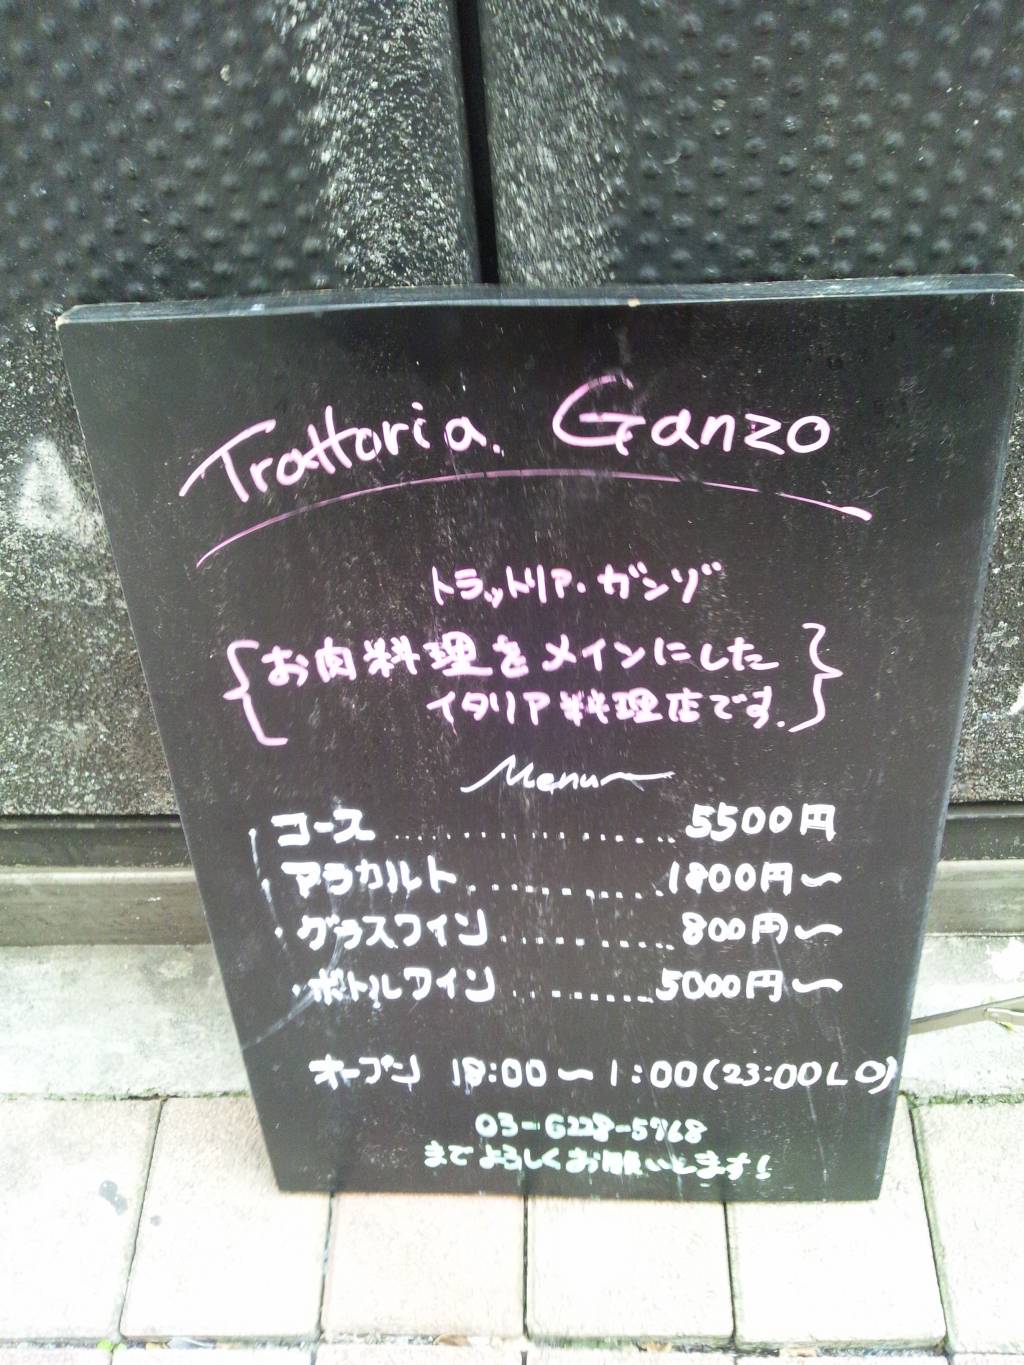 Trattoria. Ganzo
トラットリア・ガンゾ
{お肉料理をメインにした
イタリア料理店です.}
Menu
・コース..................5500円
・アラカルト..............1800円〜
・グラスワイン............800円〜
・ボトルワイン............5000円〜
オープン 18:00〜1:00(23:00LO)
03-6228-5768
までよろしくお願いします!